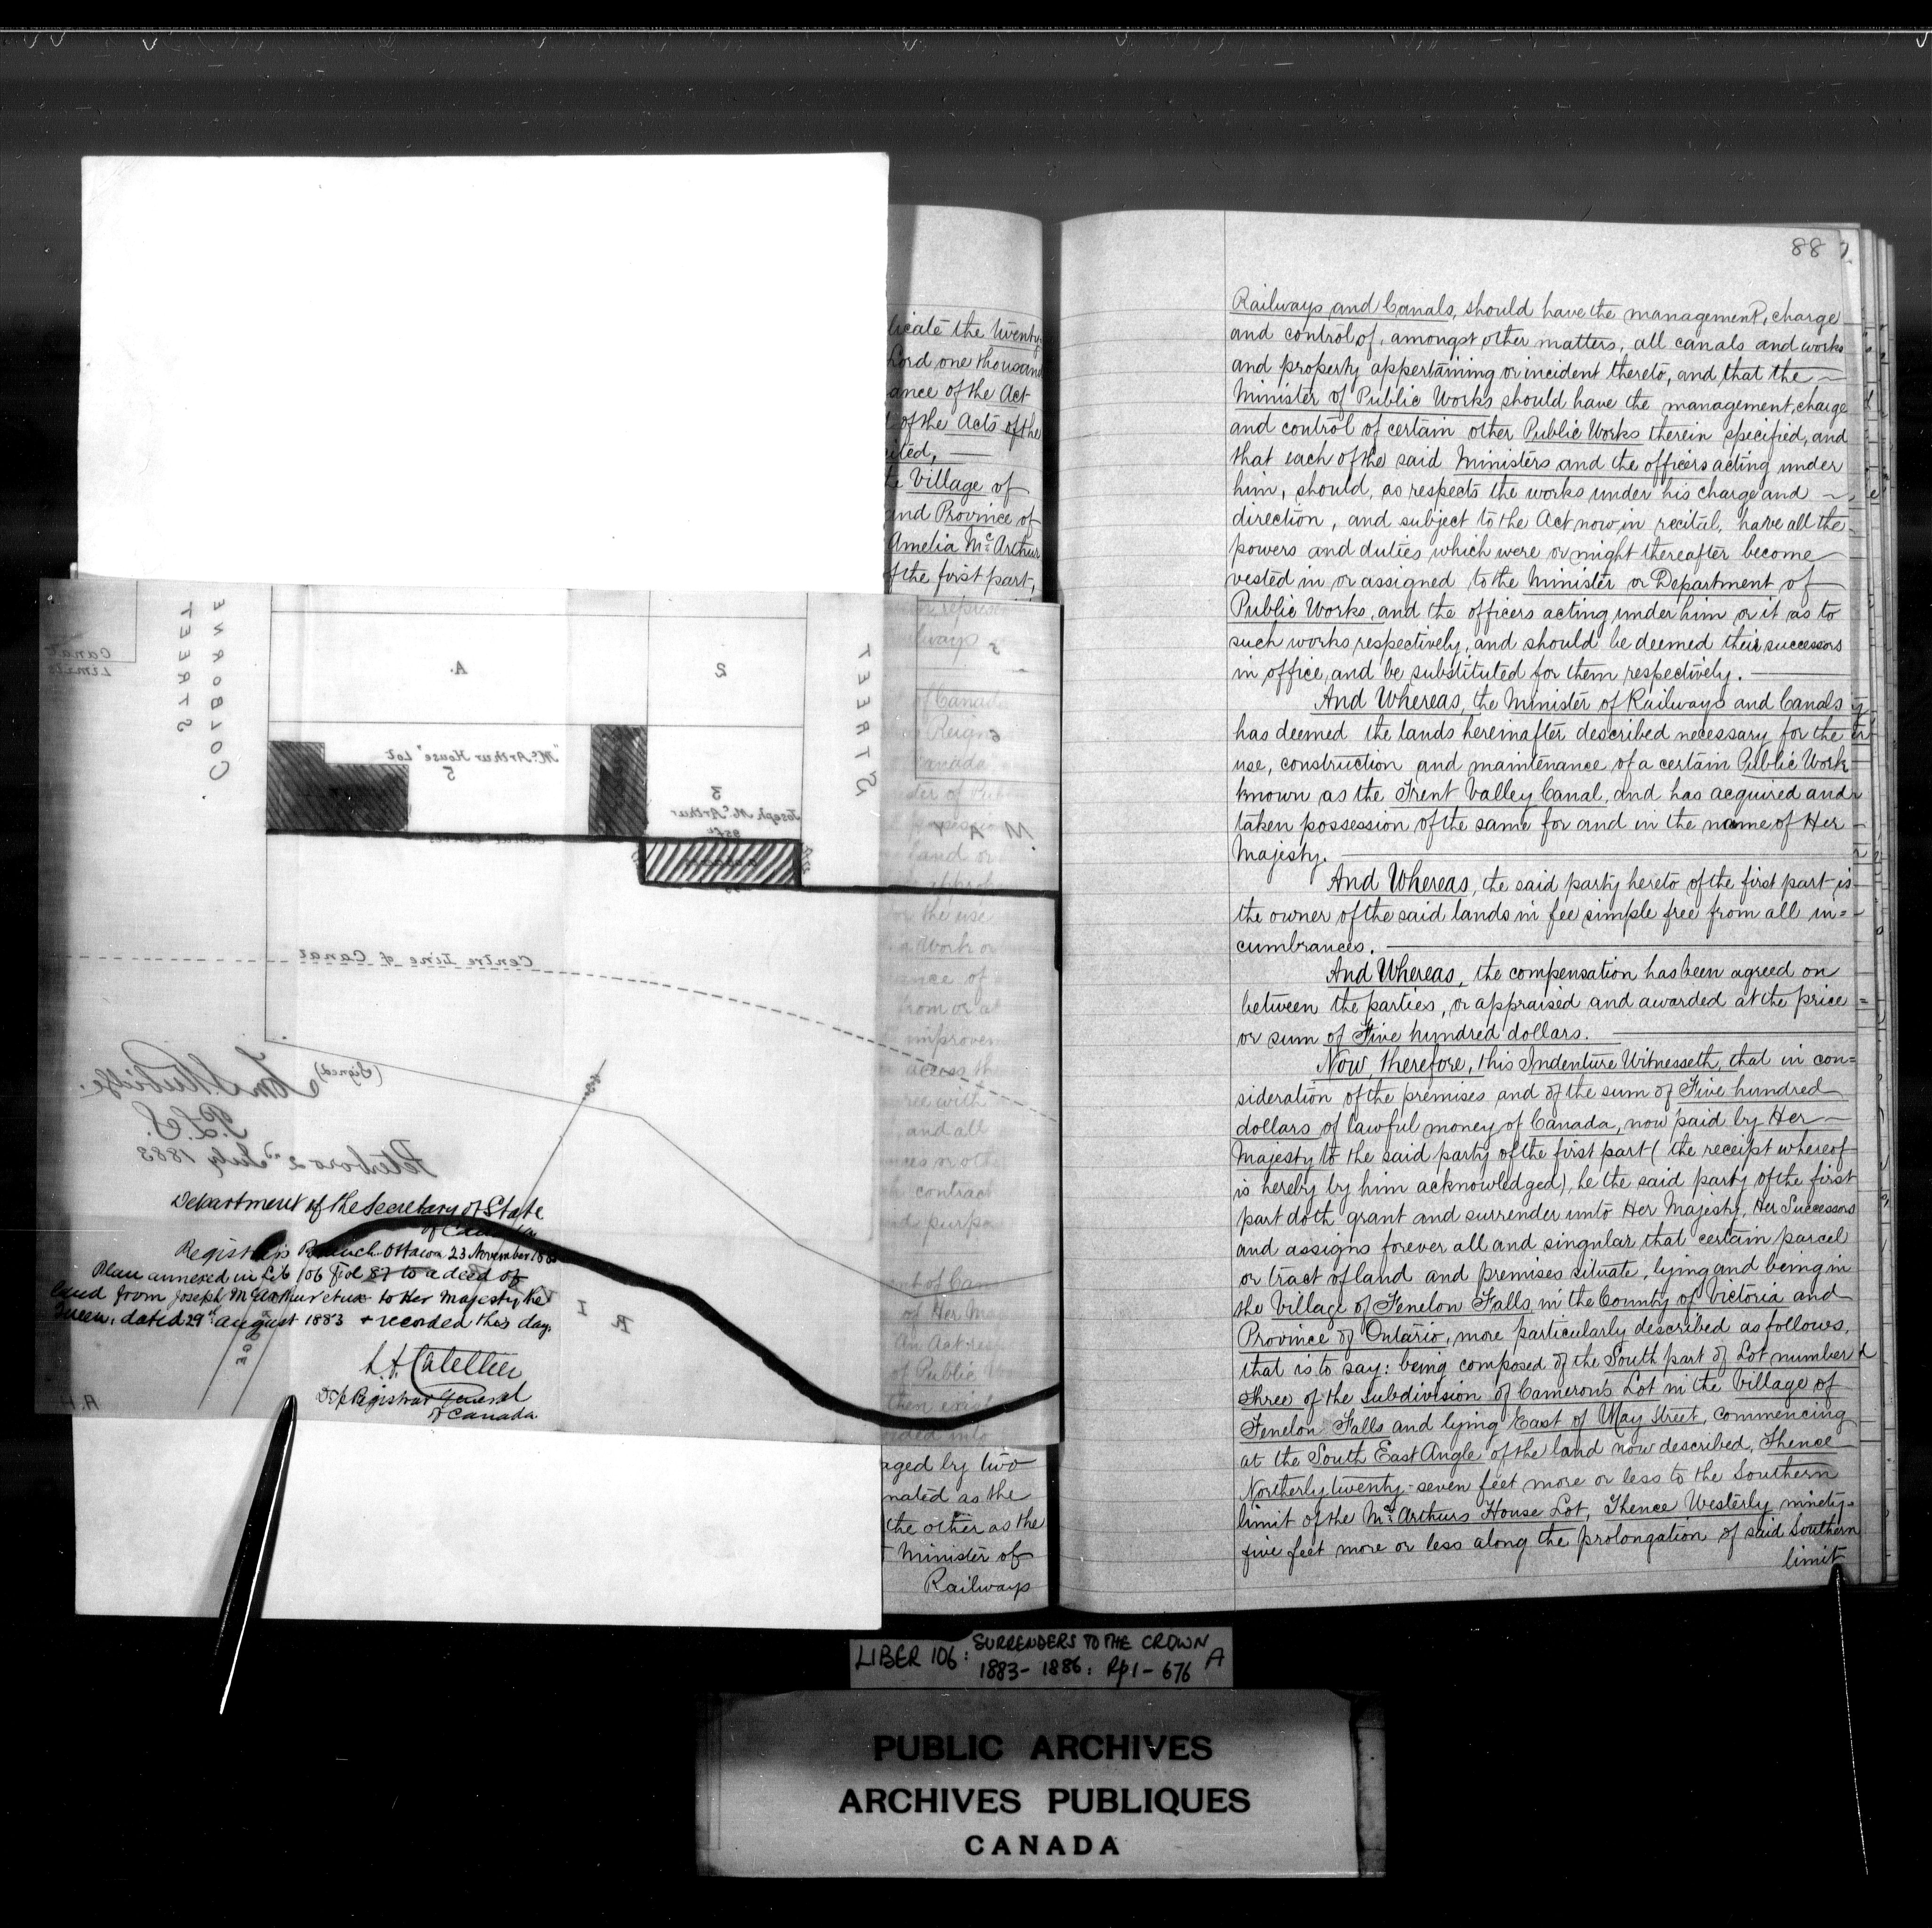 licate the twenty-
Lord one thousand
ance of the Act
of the Acts of the
cited, —
Village of
and Province of
Amelia McArthur
of the first part,
COLBORNE
STREET
Canal
Limits
A.
2
STREET
"McArthur House" Lot
5
3
Joseph McArthur
95ft
MAY
Centre Line of Canal
(Signed)
P.L.S.
Peterboro 2nd July 1883
Department of the Secretary of State
of Canada
Registrar's Branch Ottawa 23 November 188
Plan annexed in Lib 106 Fol 87 to a deed of
land from Joseph McArthur et ux to Her Majesty the
Queen, dated 29th August 1883 & recorded this day.
Dep Registrar General
of Canada
A.H.
aged by two
nated as the
the other as the
Minister of
Railways
88
Railways and Canals, should have the management, charge
and control of, amongst other matters, all canals and works
and property appertaining or incident thereto, and that the —
Minister of Public Works should have the management, charge
and control of certain other Public Works therein specified, and
that each of the said Ministers and the officers acting under
him, should, as respects the works under his charge and —
direction, and subject to the Act now in recital, have all the
powers and duties which were or might thereafter become
vested in or assigned to the Minister or Department of
Public Works, and the officers acting under him or it as to
such works respectively, and should be deemed their successors
in office, and be substituted for them respectively. —
And Whereas, the Minister of Railways and Canals
has deemed the lands hereinafter described necessary for the
use, construction and maintenance of a certain Public Work
known as the Trent Valley Canal, and has acquired and
taken possession of the same for and in the name of Her
Majesty. —
And Whereas, the said party hereto of the first part is
the owner of the said lands in fee simple free from all in=
cumbrances. —
And Whereas, the compensation has been agreed on
between the parties, or appraised and awarded at the price
or sum of Five hundred dollars. —
Now, therefore, this Indenture Witnesseth, that in con=
sideration of the premises and of the sum of Five hundred
dollars of lawful money of Canada, now paid by Her —
Majesty to the said party of the first part (the receipt whereof
is hereby by him acknowledged), he the said party of the first
part doth grant and surrender unto Her Majesty, Her Successors
and assigns forever all and singular that certain parcel
or tract of land and premises situate, lying and being in
the Village of Fenelon Falls, in the County of Victoria and
Province of Ontario, more particularly described as follows,
that is to say: being composed of the South part of Lot number
three of the subdivision of Cameron's Lot in the Village of
Fenelon Falls and lying East of May Street, commencing
at the South East Angle of the land now described, Thence
Northerly twenty-seven feet more or less to the Southern
limit of the McArthurs House Lot, Thence Westerly ninety-
five feet more or less along the prolongation of said Southern
limit
LIBER 106: SURRENDERS TO THE CROWN A
1883-1886: Pp 1-676
PUBLIC ARCHIVES
ARCHIVES PUBLIQUES
CANADA